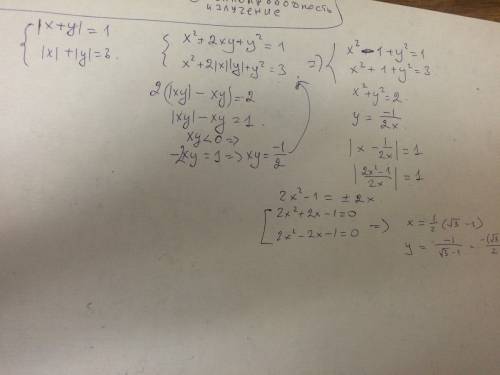 излучение
|x+y| = 1
|x| + |y| = 3.
x² + 2xy + y² = 1
x² + 2|x||y| + y² = 3
2(|xy| - xy) = 2
|xy| - xy = 1.
xy < 0 =>
-2xy = 1 => xy = -1/2
=>
x² - 1 + y² = 1
x² + 1 + y² = 3
x² + y² = 2.
y = -1/2x
|x - 1/2x| = 1
|2x² - 1/2x| = 1
2x² - 1 = ± 2x
2x² + 2x - 1 = 0
2x² - 2x - 1 = 0
=>
x = 1/2 (√3 - 1)
y = -1/√3 - 1 = -(√3/2